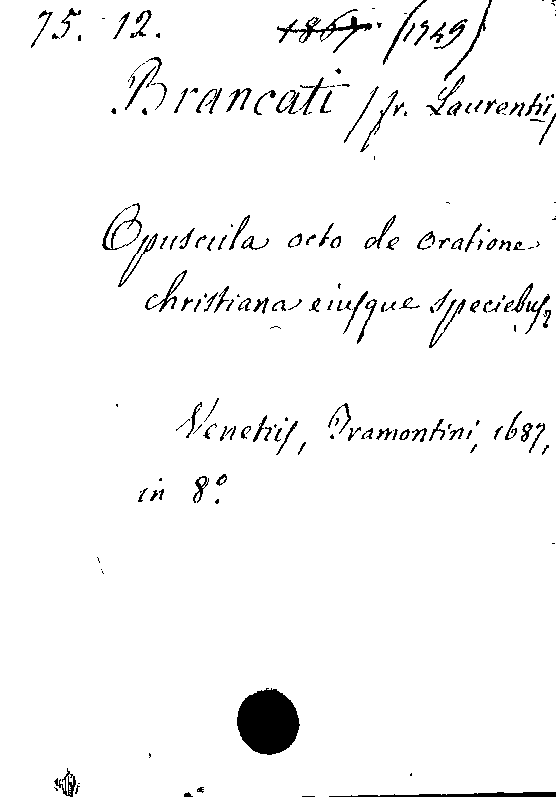 75. 12. 1867. (1749)
Brancati / fr. Laurentii,
Opuscula octo de oratione
christiana eiusque speciebus,
Venetiis, Tramontini, 1687,
in 8.º